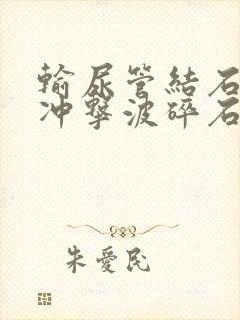 輸尿管結石
冲擊波碎石
朱愛民